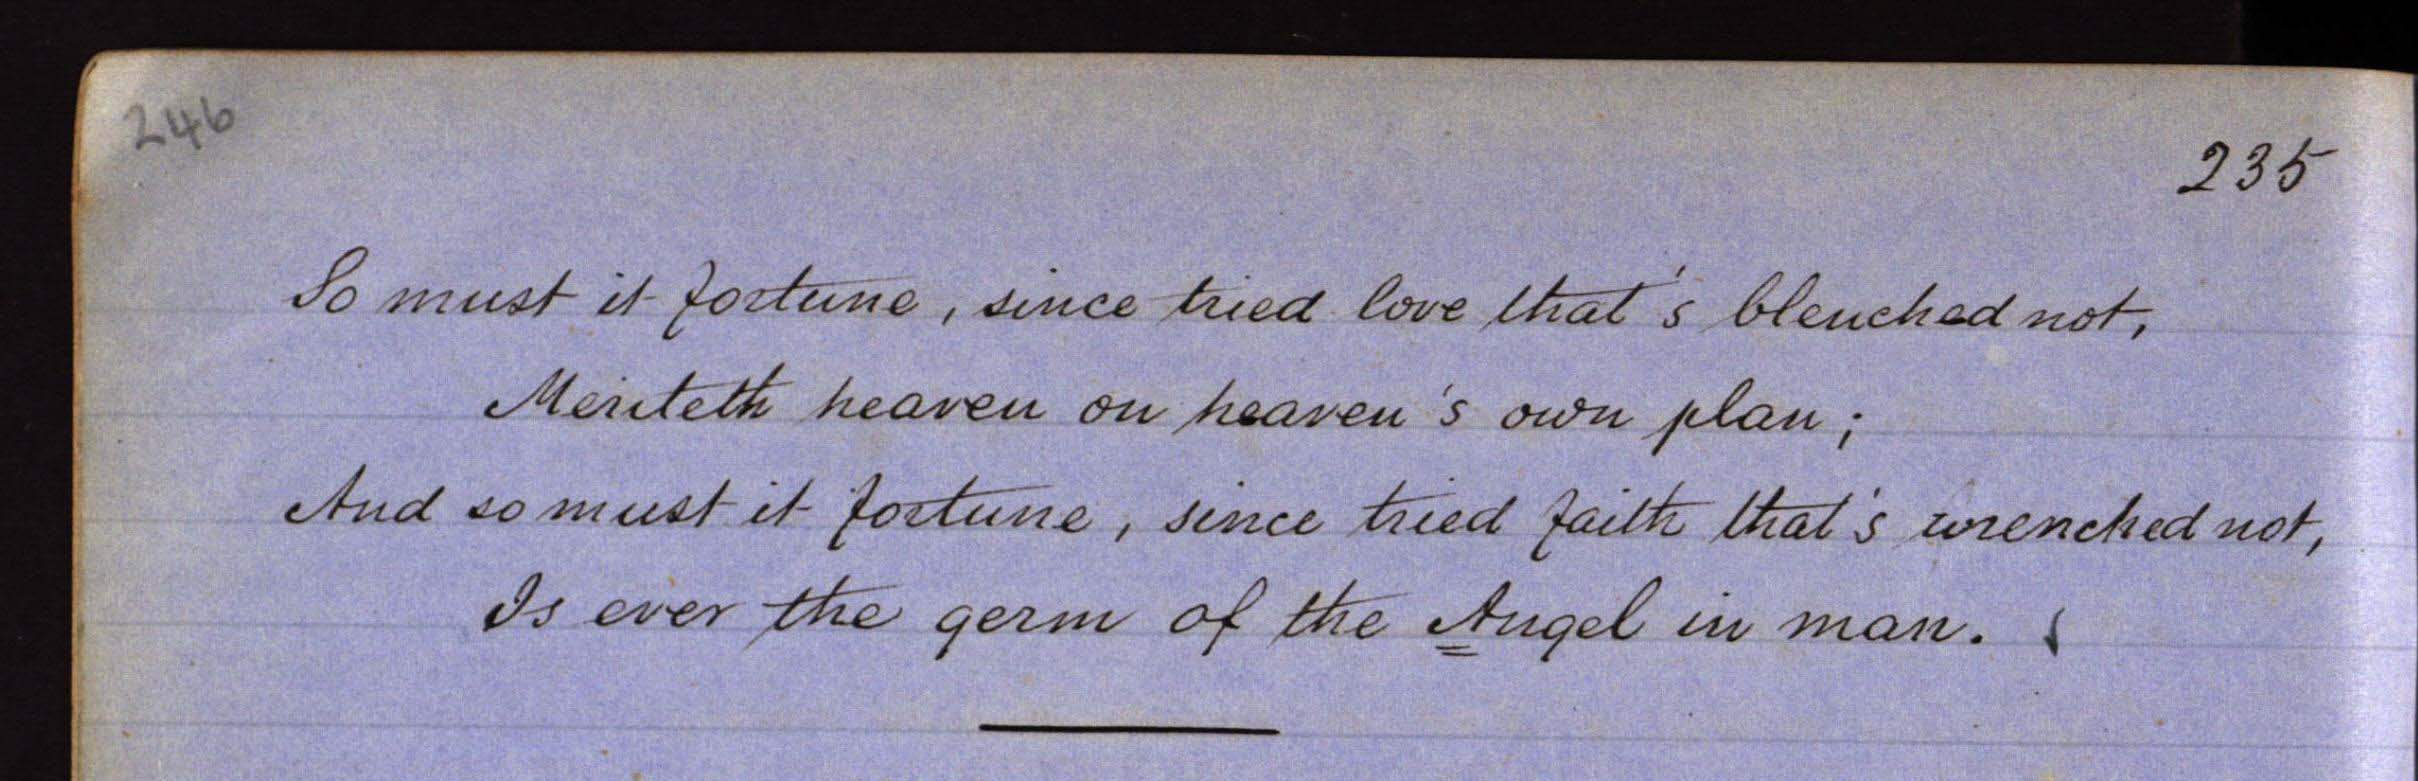 246
235
So must it fortune, since tried love that's blenched not,
Meriteth heaven on heaven's own plan;
And so must it fortune, since tried faith that's wrenched not,
Is ever the germ of the Angel in man.